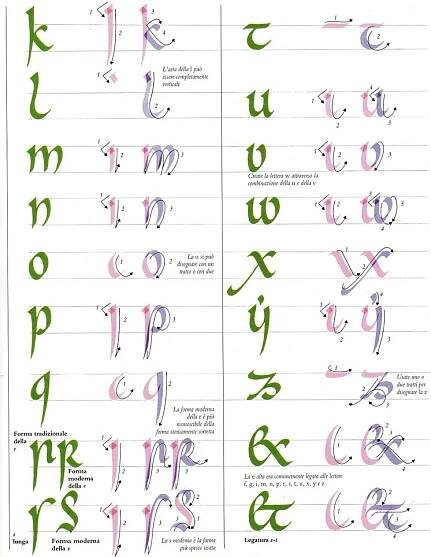 k 1 2 3 4
l 1 2
L'asta della l può
essere completamente
verticale
m 1 2 3
n 1 2 3
o 1 2
La o si può
disegnare con un
tratto o con due
p 1 2 3
q 1 2
La forma moderna
della r è più
riconoscibile della
forma storicamente corretta
Forma tradizionale
della
r
r R 1 2 3 3 4
Forma
moderna
della r
ſ S 1 2 3 1 2 3
s
lunga
Forma moderna
della s
La s moderna è la forma
più spesso usata
t 1 2
u 1 2 3 4
v 1 2 3
Create la lettera w attraverso la
combinazione della u e della v
w 1 2 3 4
x 1 2 3 4
ẏ 1 2 3 4
z 1 2 3
Usate uno o
due tratti per
disegnare la z
ex 1 2 3 4
La e alta era comunemente legata alle lettere
f, g, i, m, n, p, r, s, t, u, x, y e z
et 1 2 3 4
Legatura e-t